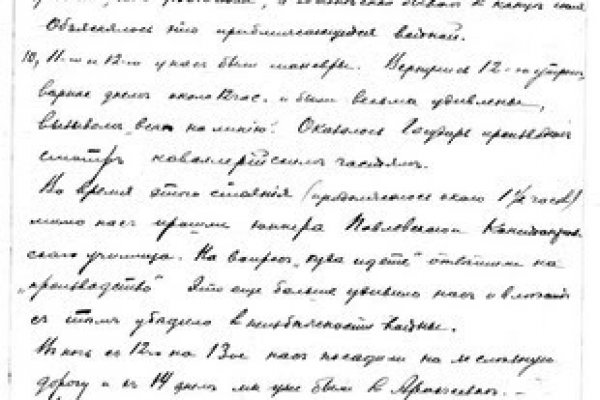 Объяснялось это приближающейся войной.
10, 11-го и 12-го у нас были маневры. Вернулись 12-го утром,
вернее днем около 12 час. и были весьма удивлены,
вызовом "всех на линию". Оказалось Государь производил
смотр кавалерийским частям.
Во время этого стояния (продолжалось около 1 1/2 часов)
мимо нас прошли юнкера Павловского
училища. На вопрос "куда идете" ответили на
"производство" Это еще больше удивило нас и
с тем убедило в неизбежности войны.
В ночь с 12го на 13ое нас посадили на железную
дорогу и в 14 днем мы уже были в